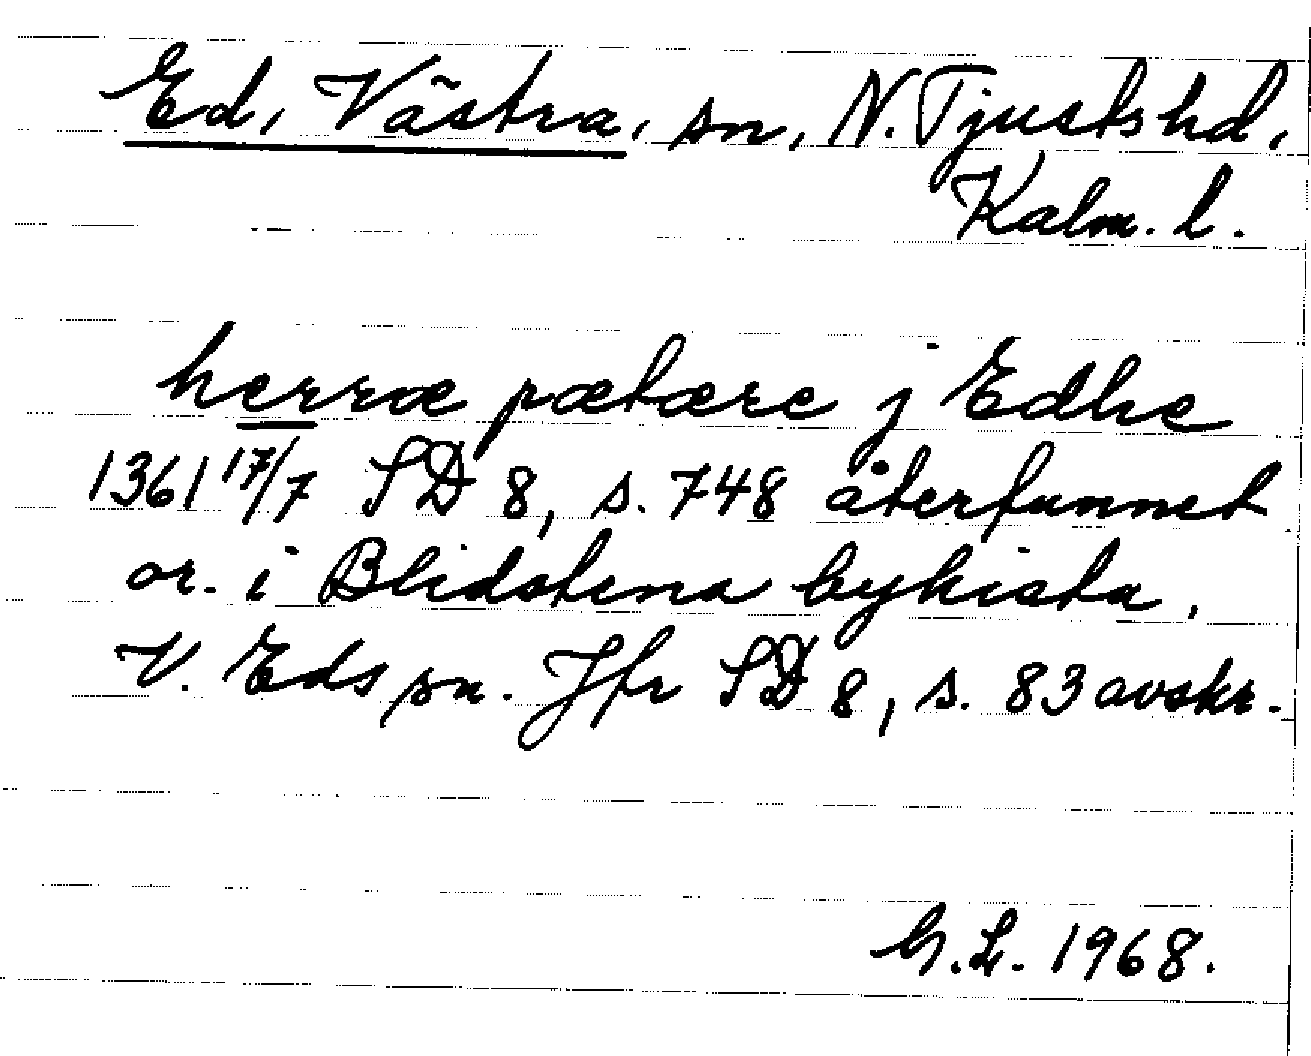 Ed, Västra, sn, N. Tjusts hd,
Kalm. l.
herræ pætære j Edhe
1361 17/7 SD 8, s. 748 återfunnet
or. i Blidstena bykista,
V. Eds sn. Jfr SD 8, s. 83 avskr.
G.L. 1968.